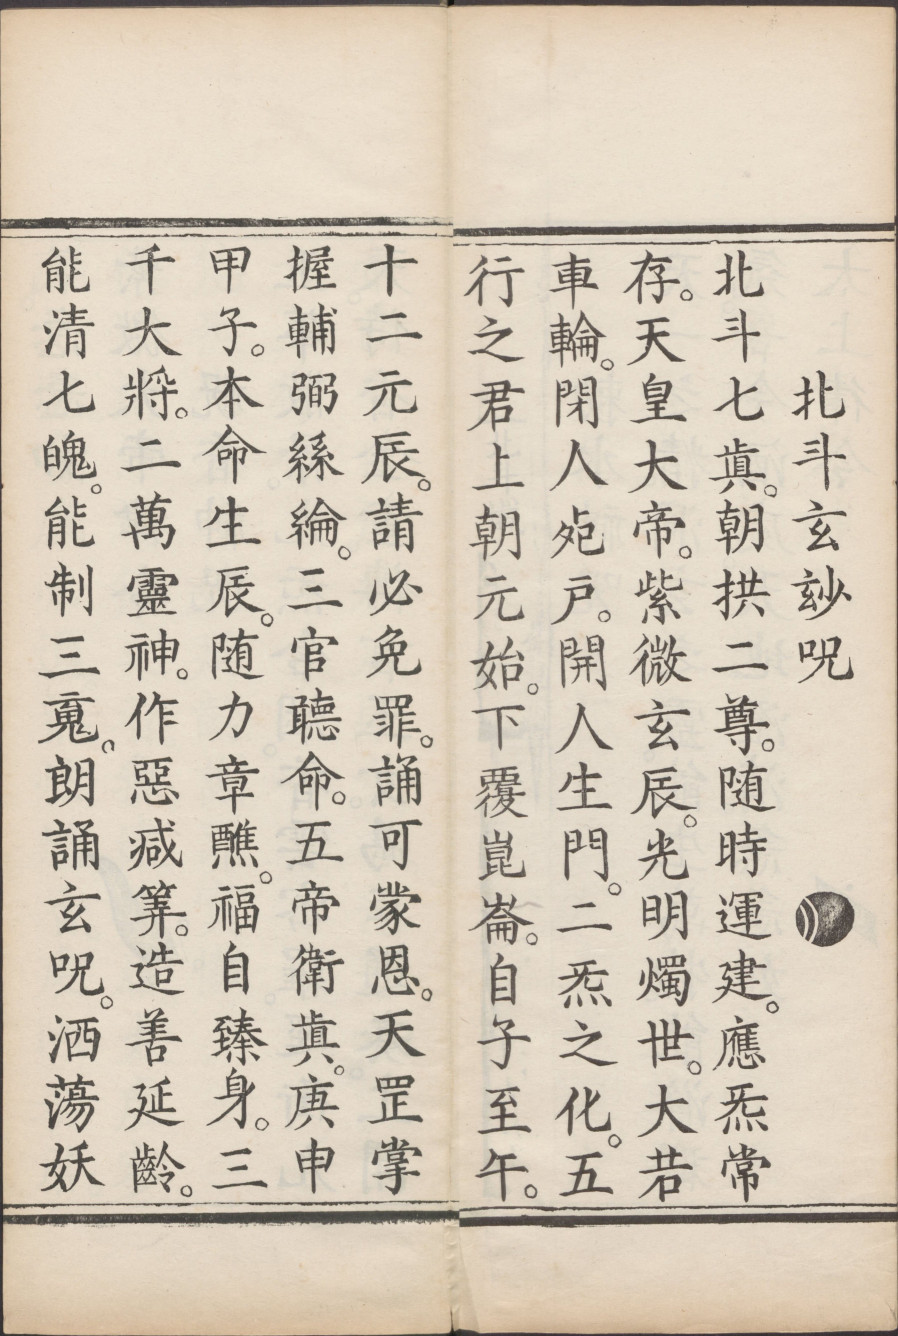 北斗玄玅呪
北斗七真。朝拱二尊。随時運建。應炁常
存。天皇大帝。紫微玄辰。光明燭世。大若
車輪。閉人死戶。開人生門。二炁之化。五
行之君上朝元始。下覆崑崙。自子至午。
十二元辰。請必免罪。誦可蒙恩。天罡掌
握輔弼絲綸。三官聽命。五帝衛真。庚申
甲子。本命生辰。随力章醮。福自臻身。三
千大將。二萬靈神。作惡减筭。造善延齡。
能清七魄。能制三䰟。朗誦玄呪。洒蕩妖